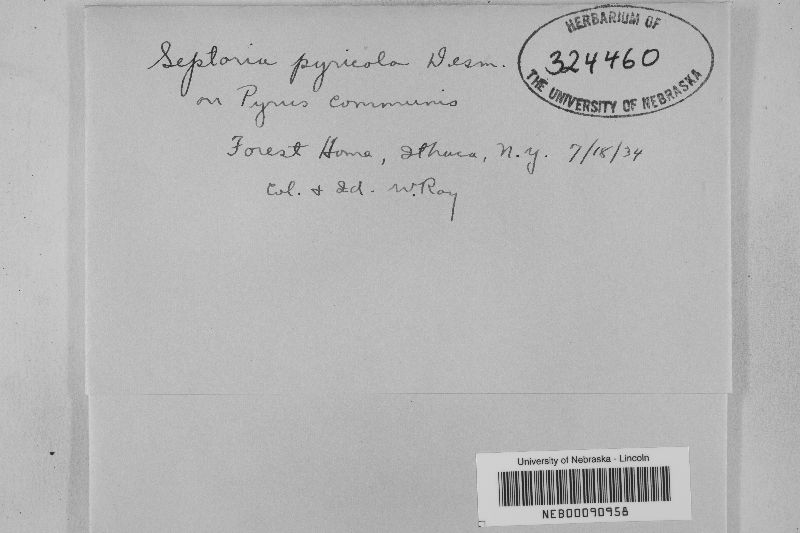 Septoria pyricola Desm.
on Pyrus communis
Forest Home, Ithaca, N.Y. 7/18/34
Col. & Id. W. Ray
HERBARIUM OF
324460
THE UNIVERSITY OF NEBRASKA
University of Nebraska - Lincoln
NEB00090958